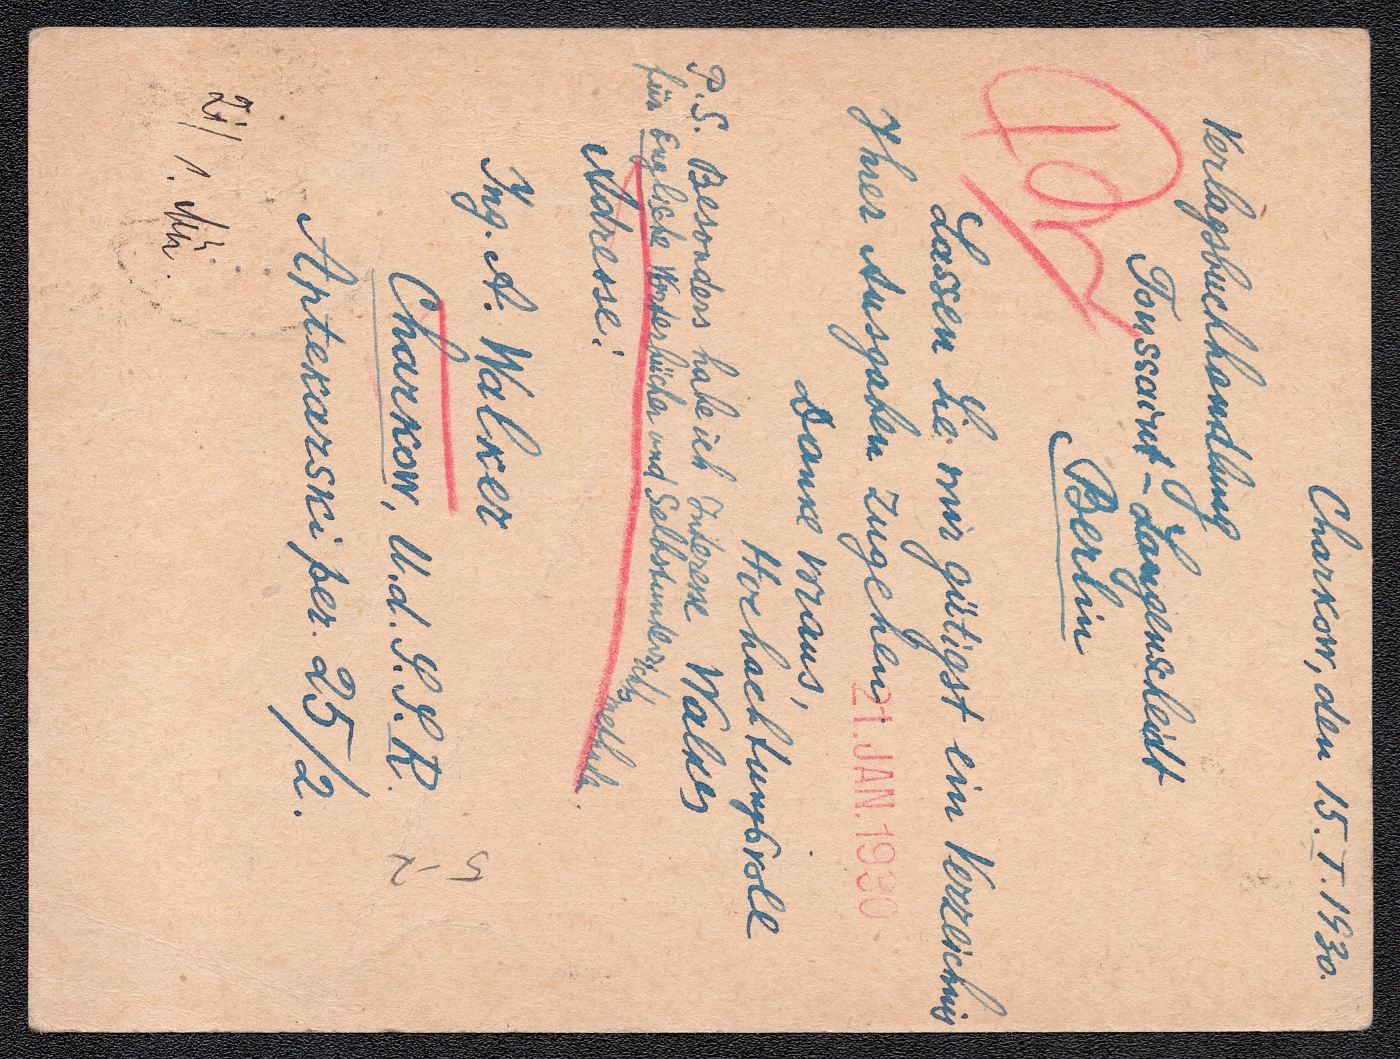 Charkow, den 15.I.1930.
Verlagsbuchhandlung
Toussaint-Langenscheidt
Berlin
Lassen Sie mir gütigst ein Verzeichnis
Ihrer Ausgaben zugehen.
21. JAN. 1930
Danke voraus,
Hochachtungsvoll
Walker
P.S. Besonders habe ich Interesse
für Englische Wörterbücher und
Adresse:
Ing. A. Walker
Charkow, U.d.S.S.R.
Aptekarski per. 25/2.
5-2